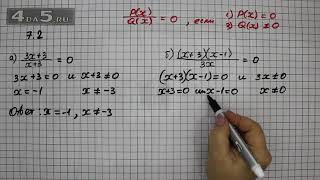 4DA5.RU
P(x)/Q(x) = 0, если 1) P(x) = 0
2) Q(x) ≠ 0
7.2
а) (3x+3)/(x+3) = 0
3x+3=0 и x+3≠0
x=-1 x≠-3
Ответ: x=-1, x≠-3
б) (x+3)(x-1)/3x = 0
(x+3)(x-1)=0 и 3x≠0
x+3=0 или x-1=0 x≠0